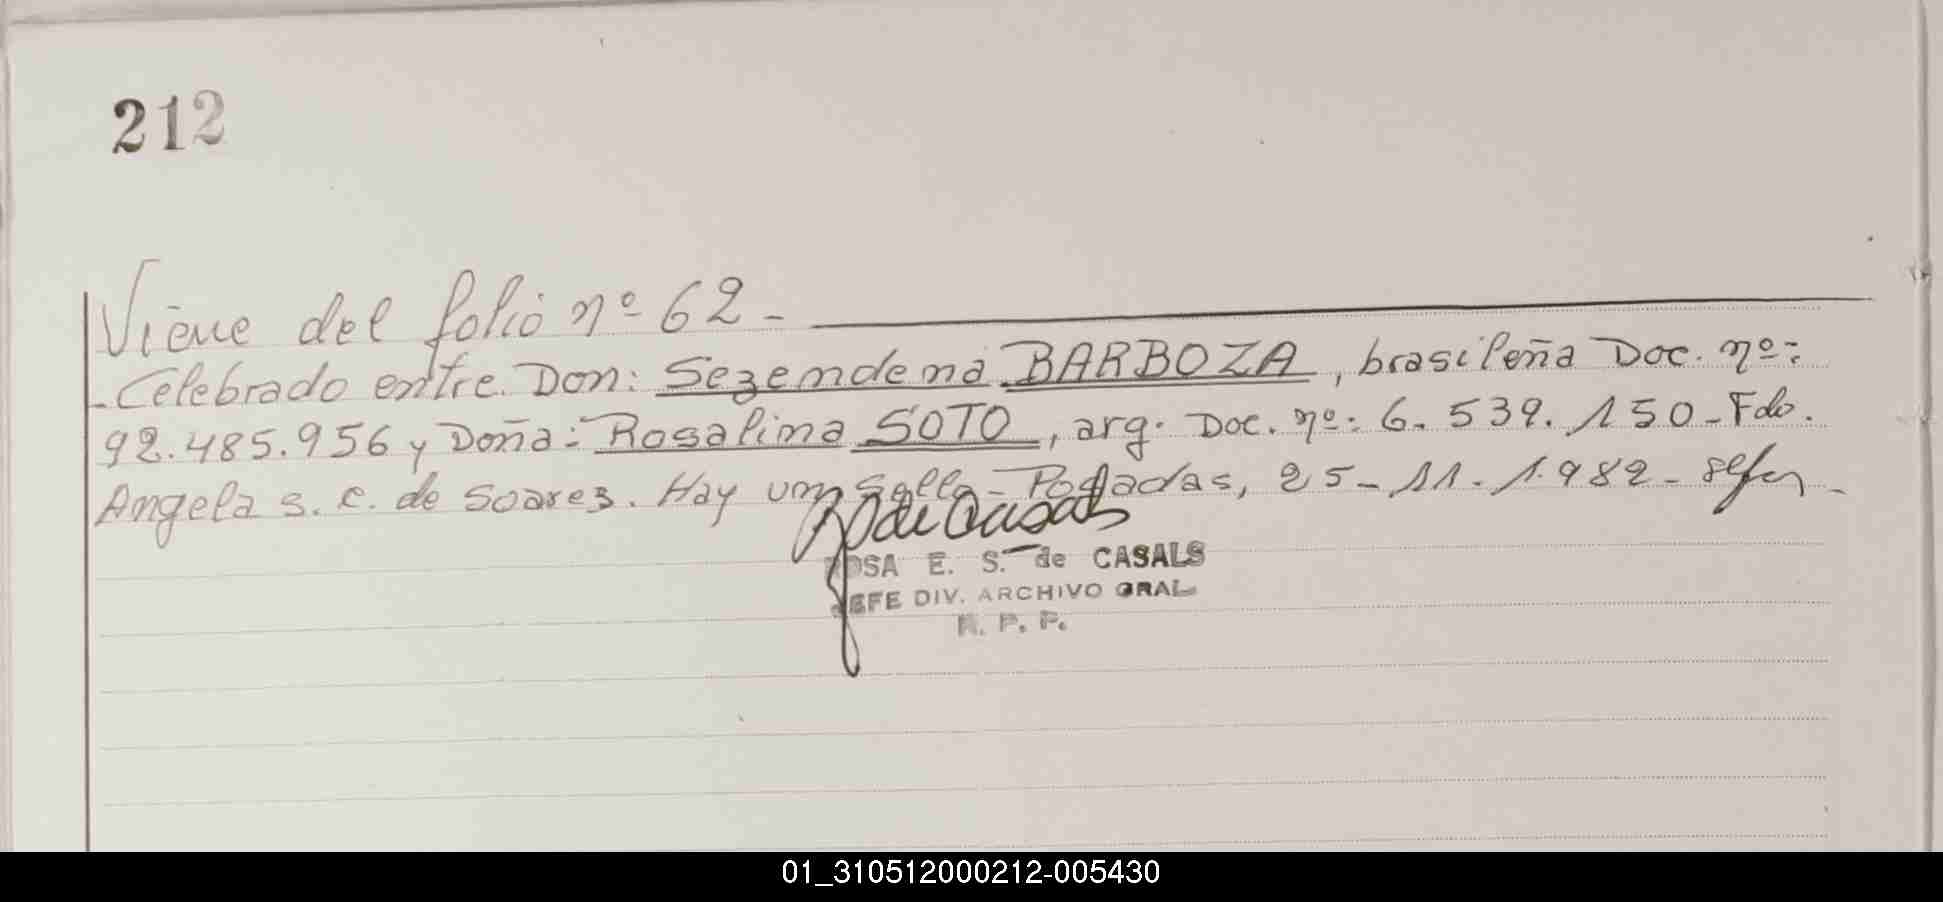 212
Viene del folio nº 62-
-Celebrado entre Don: Sezendena BARBOZA, brasileña Doc. nº:
92.485.956 y Doña: Rosalina SOTO, arg. Doc. nº: 6.539.150-Fdo.
Angela S. C. de Soarez. Hay un sello-Posadas, 25-11-1.982-
de Casals
ROSA E. S. de CASALS
JEFE DIV. ARCHIVO GRAL
R. P. P.
01_310512000212-005430